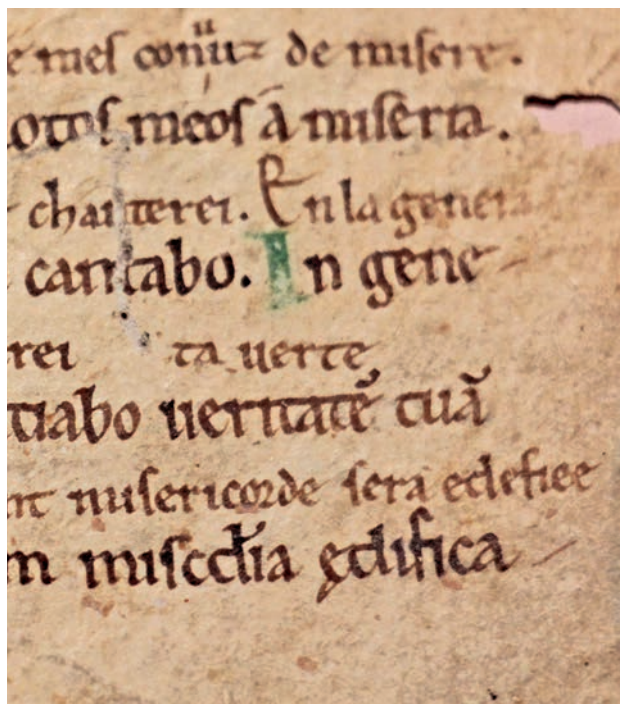 e mes conuz de misere.
notos meos ā miseria.
chanterei. En la genera
cantabo. In gene-
rei ta uerte
tiabo ueritatē tuā
nt misericorde sera edefiee
m miscdia ędifica-